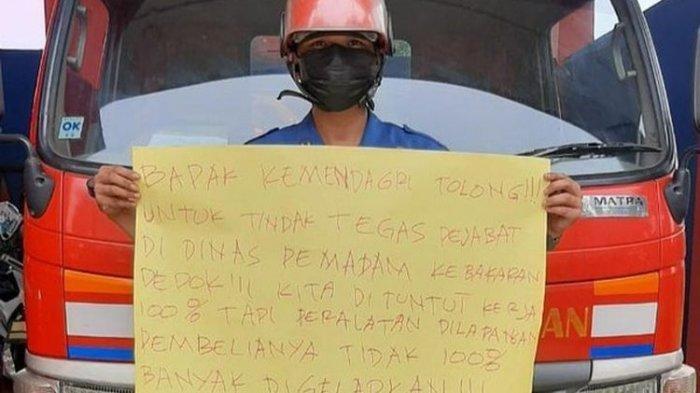 OK
BAPAK KEMENDAGRI TOLONG!!!
UNTUK TINDAK TEGAS PEJABAT
DI DINAS PEMADAM KEBAKARAN
DEPOK!!! KITA DITUNTUT KERJA
100% TAPI PERALATAN DILAPANGAN
PEMBELIANYA TIDAK 100%
BANYAK DIGELAPKAN!!!
MATRA
AN